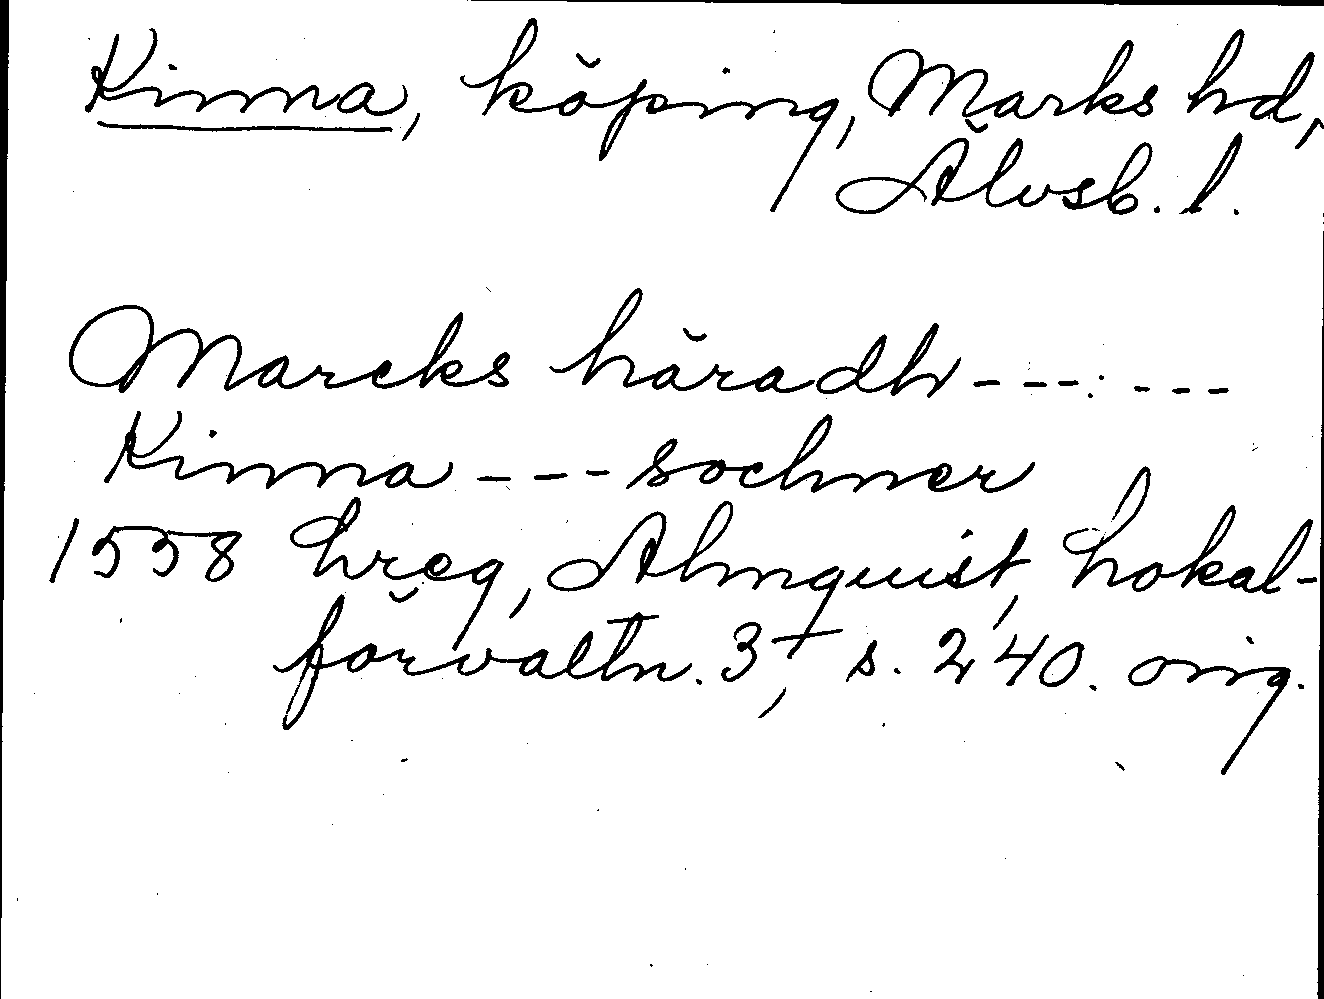 Kinna, köping, Marks hd,
Älvsb. l.
Marcks häradh --- : ---
Kinna --- sochner
1558 Lreg, Almquist, Lokal-
förvaltn. 3, s. 240. orig.